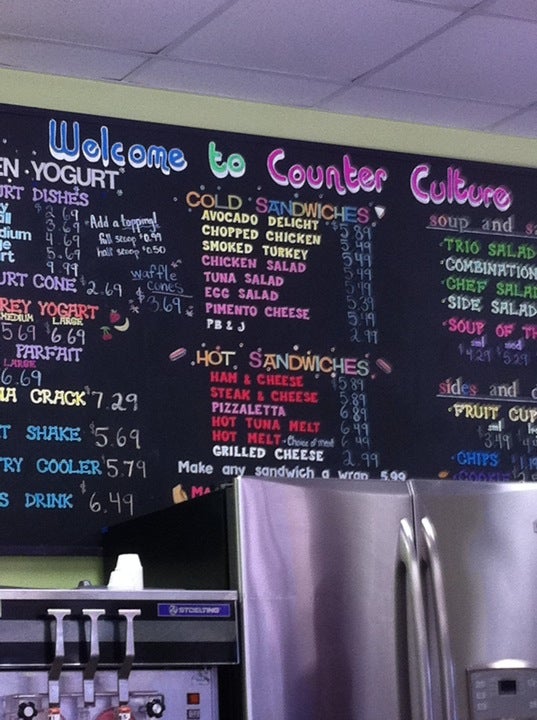 Welcome to Counter Culture
EN YOGURT
URT DISHES
y $2.69
all 3.69
dium 4.69
ge 5.69
rt 9.99
Add a topping!
full scoop $0.99
half scoop $0.50
URT CONE $2.69
waffle cones
$3.69
REY YOGART
MEDIUM LARGE
5.69 $6.69
PARFAIT
LARGE
6.69
IA CRACK $7.29
T SHAKE $5.69
RY COOLER $5.79
S DRINK $6.49
COLD SANDWICHES
AVOCADO DELIGHT $5.89
CHOPPED CHICKEN
SMOKED TURKEY
CHICKEN SALAD
TUNA SALAD
EGG SALAD
PIMENTO CHEESE
PB & J 2.99
HOT SANDWICHES
HAM & CHEESE $5.89
STEAK & CHEESE 5.89
PIZZALETTA 6.89
HOT TUNA MELT 6.49
HOT MELT - Choice of meat
GRILLED CHEESE 2.99
Make any sandwich a wrap 5.99
MA
soup and sa
TRIO SALAD
COMBINATION
CHEF SALAD
SIDE SALAD
SOUP OF TH
sml med
$4.29 $5.29
sides and d
FRUIT CUP
sml
$3.49
CHIPS
COOKIE
STOELTING